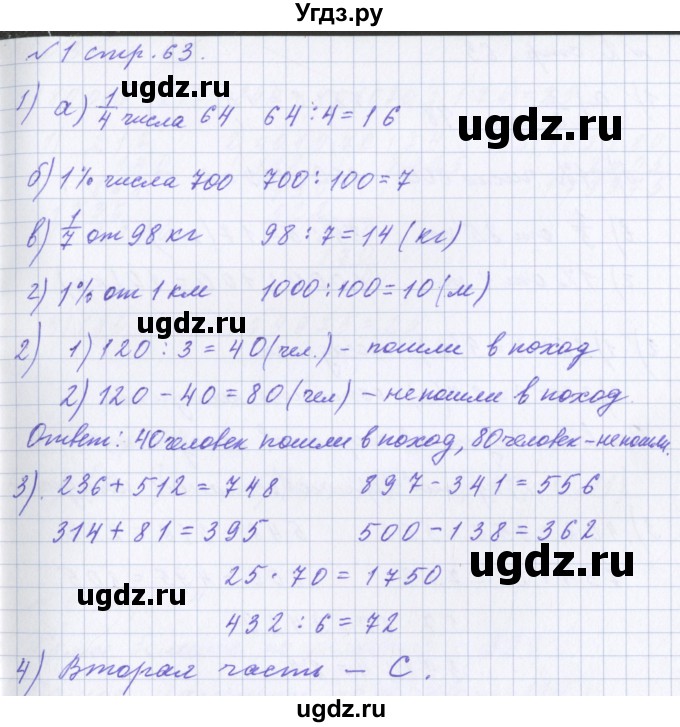 Угдз.ру
№1 стр. 63.
ugdz.ru
1) а) 1/4 числа 64 64 : 4 = 16
ugdz.ru
б) 1% числа 700 700 : 100 = 7
в) 1/7 от 98 кг 98 : 7 = 14 (кг)
г) 1% от 1 км 1000 : 100 = 10 (м)
ugdz.ru
2) 1) 120 : 3 = 40 (чел.) - пошли в поход
2) 120 - 40 = 80 (чел) - не пошли в поход
Ответ: 40 человек пошли в поход, 80 человек - не пошли.
3). 236 + 512 = 748 897 - 341 = 556
314 + 81 = 395 500 - 138 = 362
ugdz.ru
25 · 70 = 1750
ugdz.ru
432 : 6 = 72
4) Вторая часть - С.
ugdz.ru